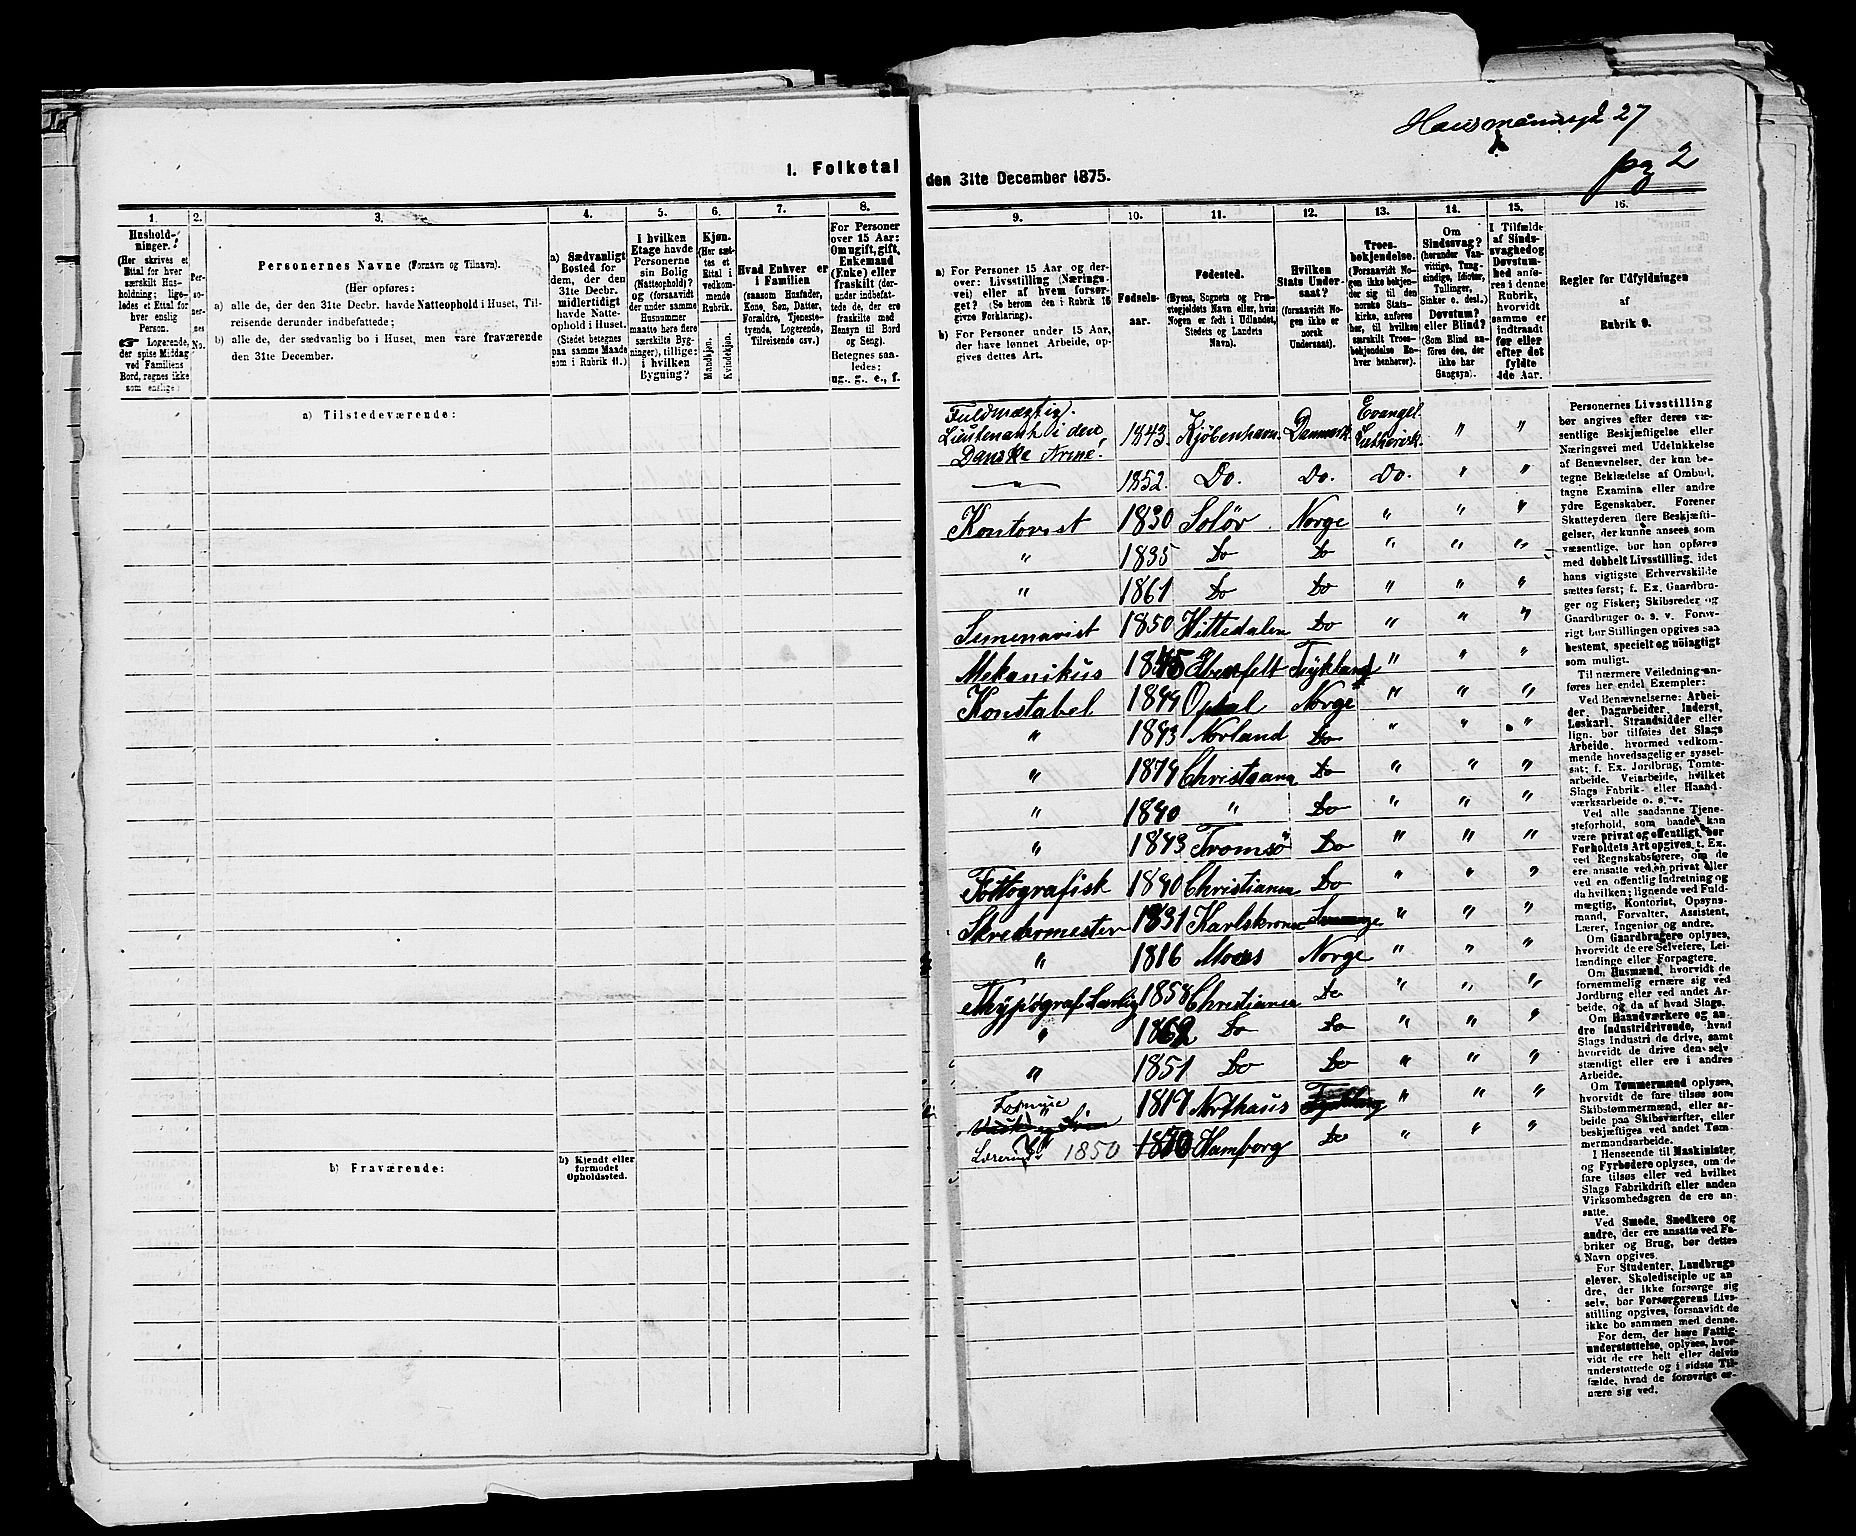 Hausmannsgd 27
pag 2
I. Folketal
den 31te December 1875.
1. 2. 3. 4. 5. 6. 7. 8.
Husholdninger.
(Her skrives et Ettal for hver særskilt Husholdning; ligeledes et Ettal for hver enslig Person.
Logerende, der spise Middag ved Familiens Bord, regnes ikke som enslige.)
Personernes No.
Personernes Navne (Fornavn og Tilnavn).
(Her opføres:
a) alle de, der den 31te Decbr. havde Natteophold i Huset, Tilreisende derunder indbefattede;
b) alle de, der sædvanlig bo i Huset, men vare fraværende den 31te December.
a) Sædvanligt Bosted for dem, der den 31te Decbr. midlertidigt havde Natteophold i Huset. (Stedet betegnes paa samme Maade som i Rubrik 11.)
I hvilken Etage havde Personerne sin Bolig (Natteophold)? og (forsaavidt der under samme Husnummer maatte høre flere særskilte Bygninger), tillige: i hvilken Bygning?
Kjøn.
(Her sættes et Ettal i vedkommende Rubrik.
Mandkjøn.
Kvindekjøn.
Hvad Enhver er i Familien
(saasom Husfader, Kone, Søn, Datter, Forældre, Tjenestetyende, Logerende, Tilreisende osv.)
For Personer over 15 Aar: Om ugift, gift, Enkemand (Enke) eller fraskilt (derunder indbefattede de, der ere fraskilte med Hensyn til Bord og Seng).
Betegnes saaledes: ug., g., e., f.
a) Tilstedeværende:
b) Fraværende:
b) Kjendt eller formodet Opholdssted.
9. 10. 11. 12. 13. 14. 15. 16.
a) For Personer 15 Aar og derover: Livsstilling (Næringsvei) eller af hvem forsørget? (Se herom den i Rubrik 16 givne Forklaring).
b) For Personer under 15 Aar, der have lønnet Arbeide, opgives dettes Art.
Fødselsaar.
Fødested.
(Byens, Sognets og Præstegjeldets Navn eller, hvis Nogen er født i Udlandet, Stedets og Landets Navn).
Hvilken Stats Undersaat?
(Forsaavidt Nogen ikke er norsk Undersaat).
Troesbekjendelse.
(Forsaavidt Nogen ikke bekjender sig til den norske Statskirke, anføres her, til hvilken særskilt Troesbekjendelse Enhver henhører).
Om Sindssvag? (herunder Vanvittige, Tungsindige, Idioter, Tullinger, Sinker o. desl.)
Døvstum? eller Blind? (Som Blind anføres den, der ikke har Gangsyn).
I Tilfælde af Sindssvaghed og Døvstumhed anføres i denne Rubrik, hvorvidt samme er indtraadt før eller efter det fyldte 4de Aar.
Regler for Udfyldningen af Rubrik 9.
Fuldmægtig.
Lieutenant i den Danske Arme. 1843. Kjøbenhavn. Danmark. Evangel. Lutherisk. " "
" 1852. Do. Do. Do. " "
Kontorist 1830 Solør Norge " " "
" 1835 Do Do " " "
" 1861 Do Do " " "
Semenarist 1850 Hittedalen Do " " "
Mekanikus 1845 Tyskland " " "
Konstabel 1844 Opdal Norge " " "
" 1843 Norland Do " " "
" 1874 Christiania Do " " "
" 1840 " Do " " "
" 1843 Tromsø Do " " "
Fottografisk 1840 Christiania Do " " "
Skredermester 1831 Karlskrona " " "
" 1816 Moss Norge " " "
Thypograf Lærling 1858 Christiania Do " " "
" 1862 Do Do " " "
" 1851 Do Do " " "
Formue 1819 Northaus Tyskland " " "
Lærerinde 1850 1850 Hamborg Do " " "
Personernes Livsstilling bør angives efter deres væsentlige Beskjæftigelse eller Næringsvei med Udelukkelse af Benævnelser, der kun betegne Beklædelse af Ombud, tagne Examina eller andre ydre Egenskaber. Forener Skatteyderen flere Beskjæftigelser, der kunne ansees som væsentlige, bør han opføres med dobbelt Livsstilling, idet hans vigtigste Erhvervskilde sættes først; f. Ex. Gaardbruger og Fisker; Skibsreder og Gaardbruger o. s. v. Forøvrigt bør Stillingen opgives saa bestemt, specielt og nøiagtigt som muligt.
Til nærmere Veiledning anføres her endel Exempler:
Ved Benævnelserne: Arbeider, Dagarbeider, Inderst, Løskarl, Strandsidder eller lign. bør tilføies det Slags Arbeide, hvormed vedkommende hovedsagelig er sysselsat; f. Ex. Jordbrug, Tomtearbeide, Veiarbeide, hvilket Slags Fabrik- eller Haandværksarbeide o. s. v.
Ved alle saadanne Tjenesteforhold, som baade kan være privat og offentligt, bør Forholdets Art opgives, t. Ex. ved Regnskabsførere, om de ere ansatte ved en privat eller ved en offentlig Indretning og da hvilken; lignende ved Fuldmægtig, Kontorist, Opsynsmand, Forvalter, Assistent, Lærer, Ingeniør og andre.
Om Gaardbrugere oplyses, hvorvidt de ere Selveiere, Leilændinge eller Forpagtere.
Om Husmænd, hvorvidt de fornemmelig ernære sig ved Jordbrug eller ved andet Arbeide, og da af hvad Slags.
Om Haandværkere og andre Industridrivende, hvad Slags Industri de drive, samt hvorvidt de drive den selvstændigt eller ere i andres Arbeide.
Om Tømmermænd oplyses, hvorvidt de fare tilsøs som Skibstømmermænd, eller arbeide paa Skibsværfter, eller beskjæftiges ved andet Tømmermandsarbeide.
I Henseende til Maskinister og Fyrbødere oplyses, om de fare tilsøs eller ved hvilket Slags Fabrikdrift eller anden Virksomhedsgren de ere ansatte.
Ved Smede, Snedkere og andre, der ere ansatte ved Fabriker og Brug, bør dettes Navn opgives.
For Studenter, Landbrugselever, Skoledisciple og andre, der ikke forsørge sig selv, bør Forsørgerens Livsstilling opgives, forsaavidt de ikke bo sammen med denne.
For dem, der have Fattigunderstøttelse, oplyses, hvorvidt de ere helt eller delvis understøttede og i sidste Tilfælde, hvad de forøvrigt ernære sig ved.